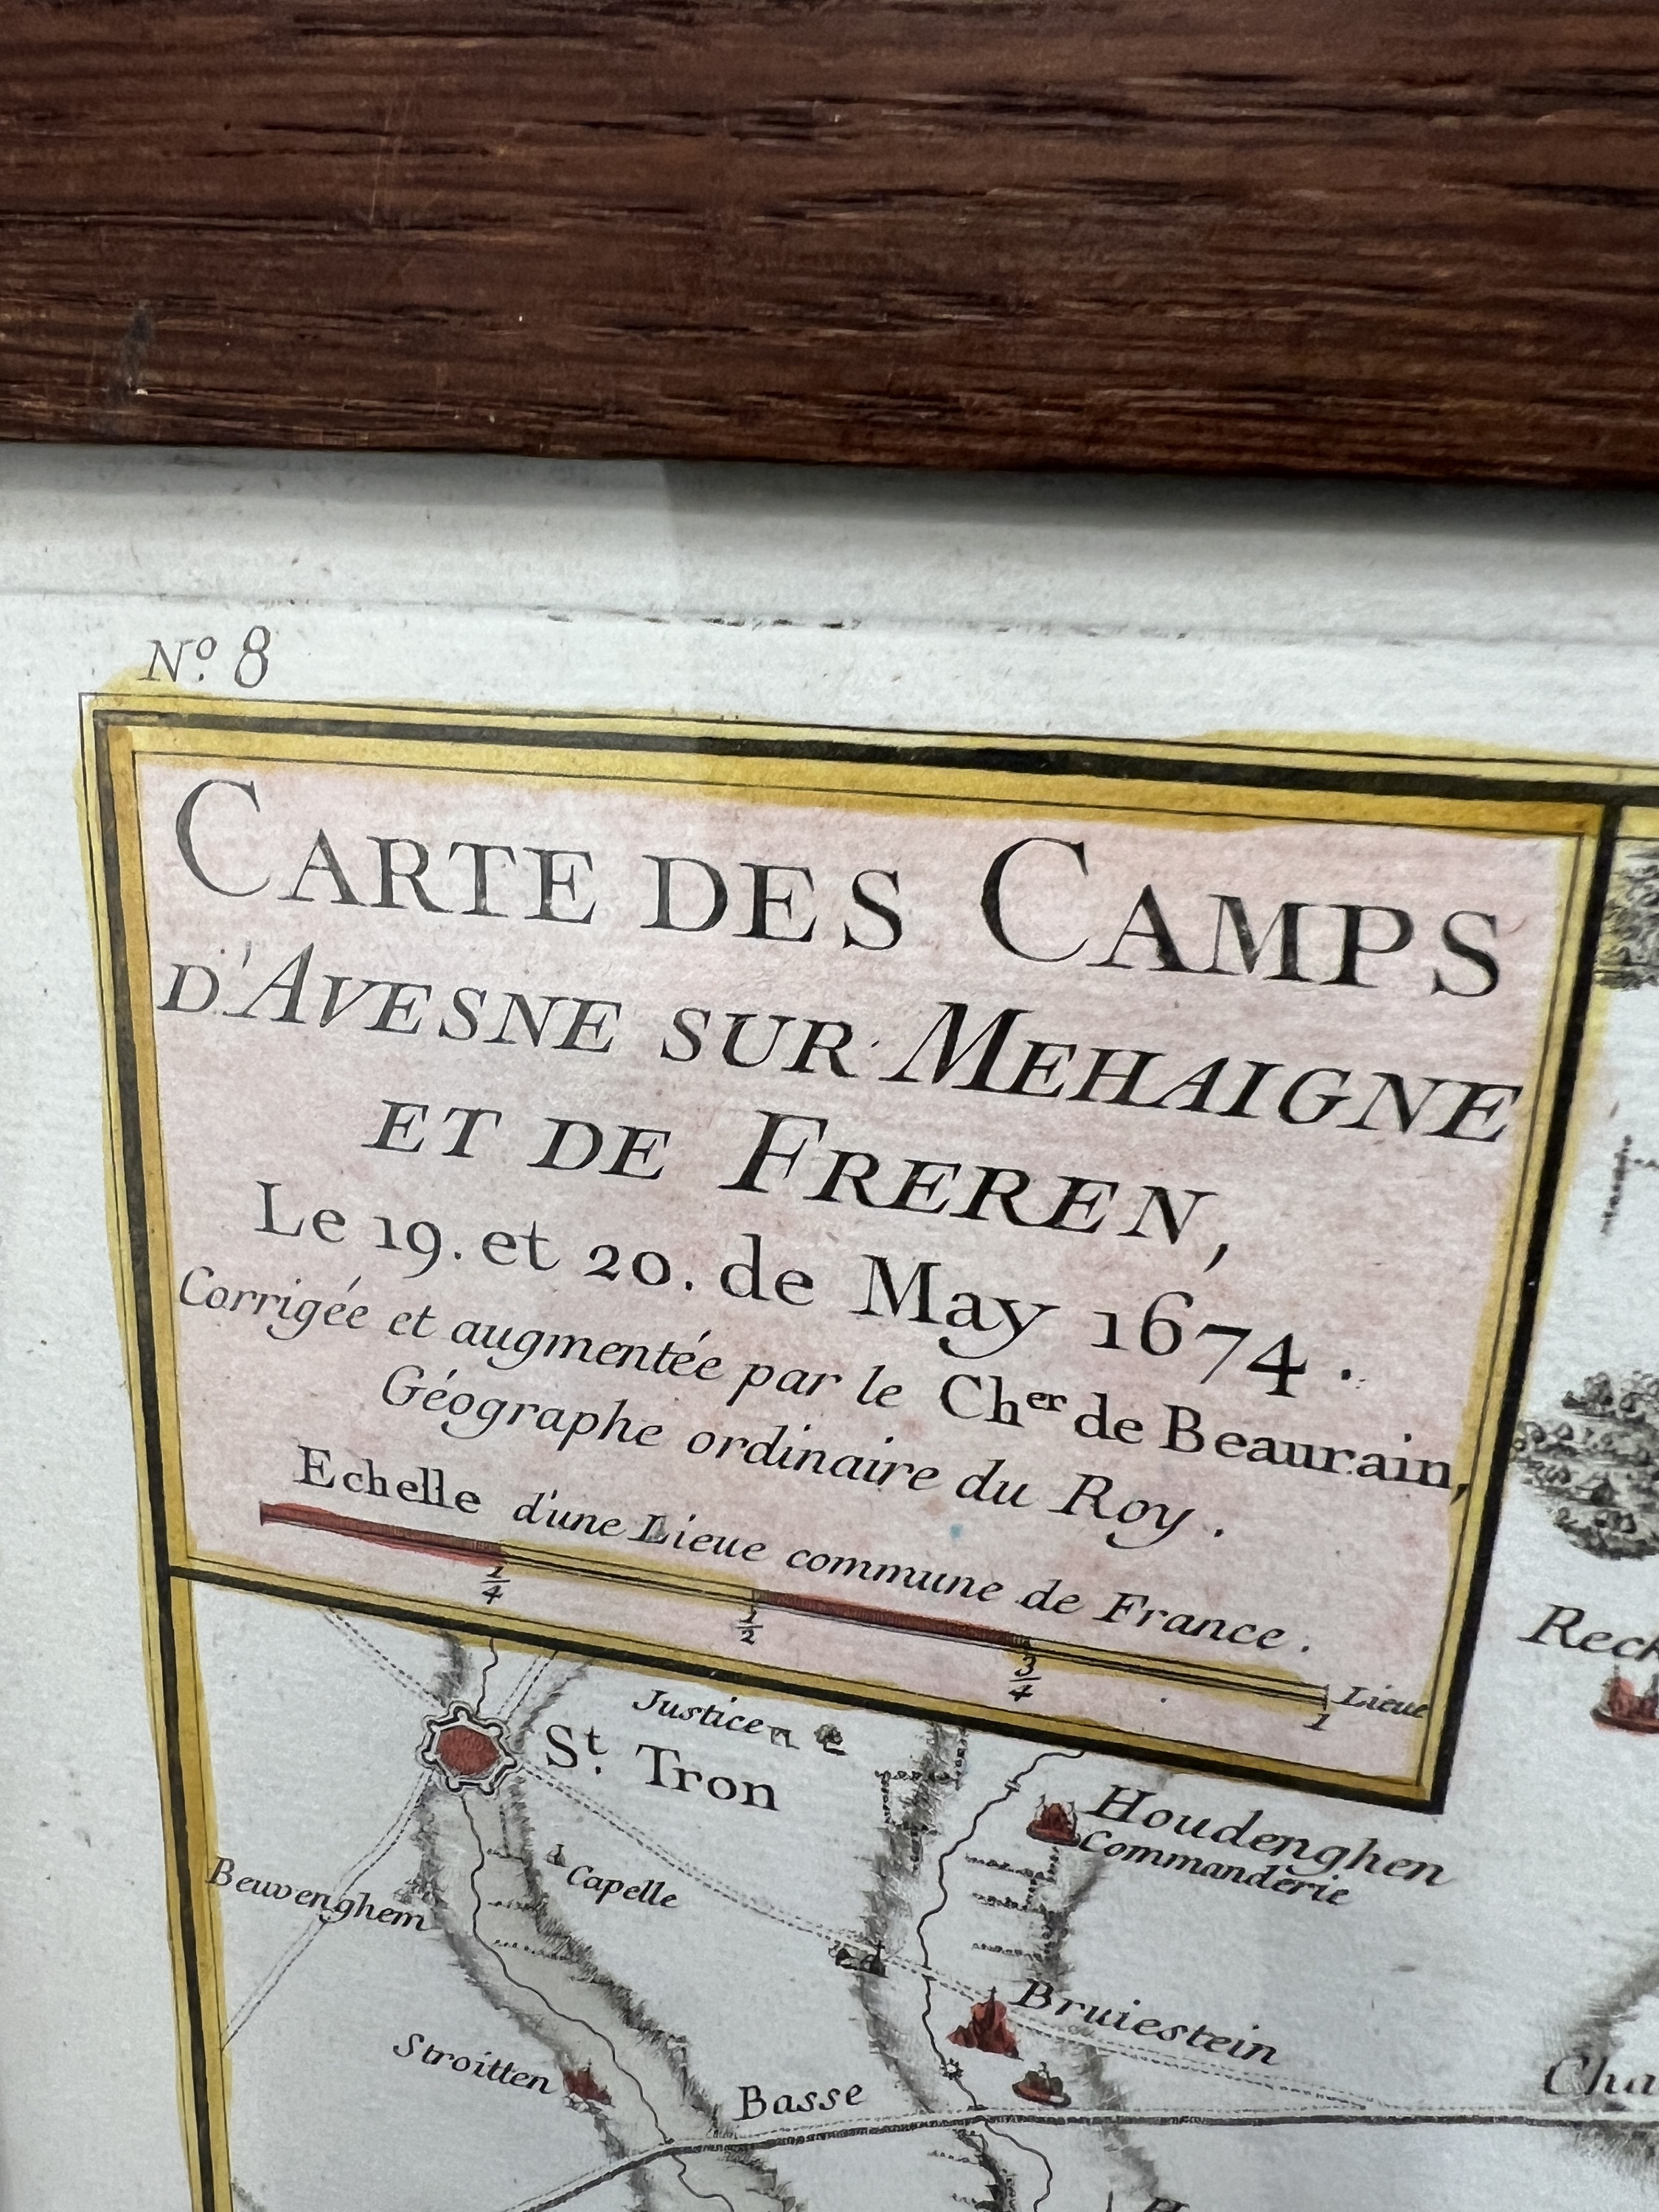 Nº. 8
CARTE DES CAMPS
D'AVESNE SUR MEHAIGNE
ET DE FREREN,
Le 19. et 20. de May 1674.
Corrigée et augmentée par le Cher de Beaurain,
Géographe ordinaire du Roy.
Echelle d'une Lieue commune de France.
1/4 1/2 3/4 1 Lieue
Justice
St. Tron
Houdenghen
Commanderie
Capelle
Beuvenghem
Bruiestein
Stroitten
Basse